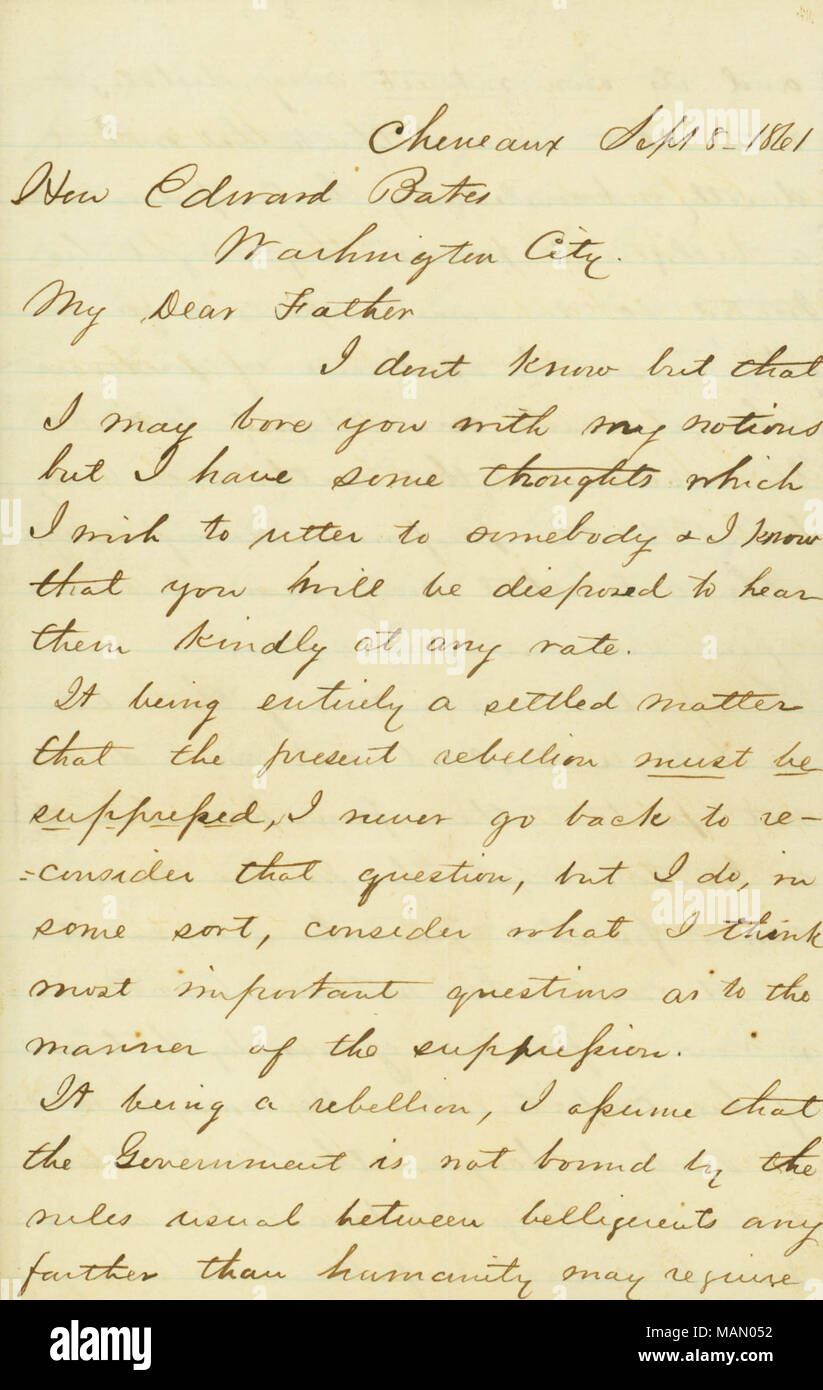 Cheneaux Sept 8 - 1861
Hon Edward Bates
Washington City.
My Dear Father
I dont know but that
I may bore you with my notions
but I have some thoughts which
I wish to utter to somebody & I know
that you will be disposed to hear
them kindly at any rate.
It being entirely a settled matter
that the present rebellion must be
suppressed, I never go back to re-
=consider that question, but I do, in
some sort, consider what I think
most important questions as to the
manner of the suppression.
It being a rebellion, I assume that
the Government is not bound by the
rules usual between belligerents any
farther than humanity may require
alamy
alamy stock photo
MAN052
www.alamy.com